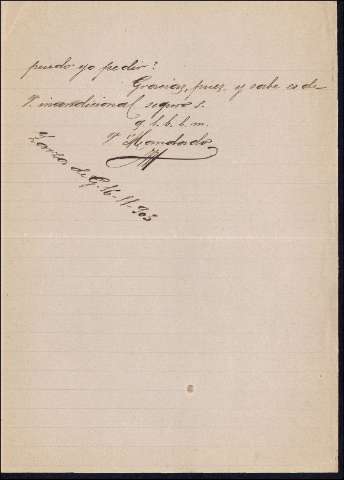 puedo yo pedir?
Gracias, pues, y sabe es de
V. incondicional seguro s.
q. l. b. l. m.
V Mandado
Zarza de G. 16-11-903